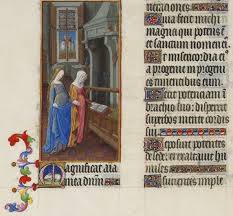 nerationes
Quia fecit michi
magna qui potens e
et sanctum nomen ei
Et misericordia ei a
progenie in progeni
es timentibus eum
Fecit potenciam i
brachio suo: dispersit
superbos mente cordis
sui
Deposuit potentes
de sede: et exaltavit hu
miles
Esurientes imple
Magnificat a ia
mea dnm